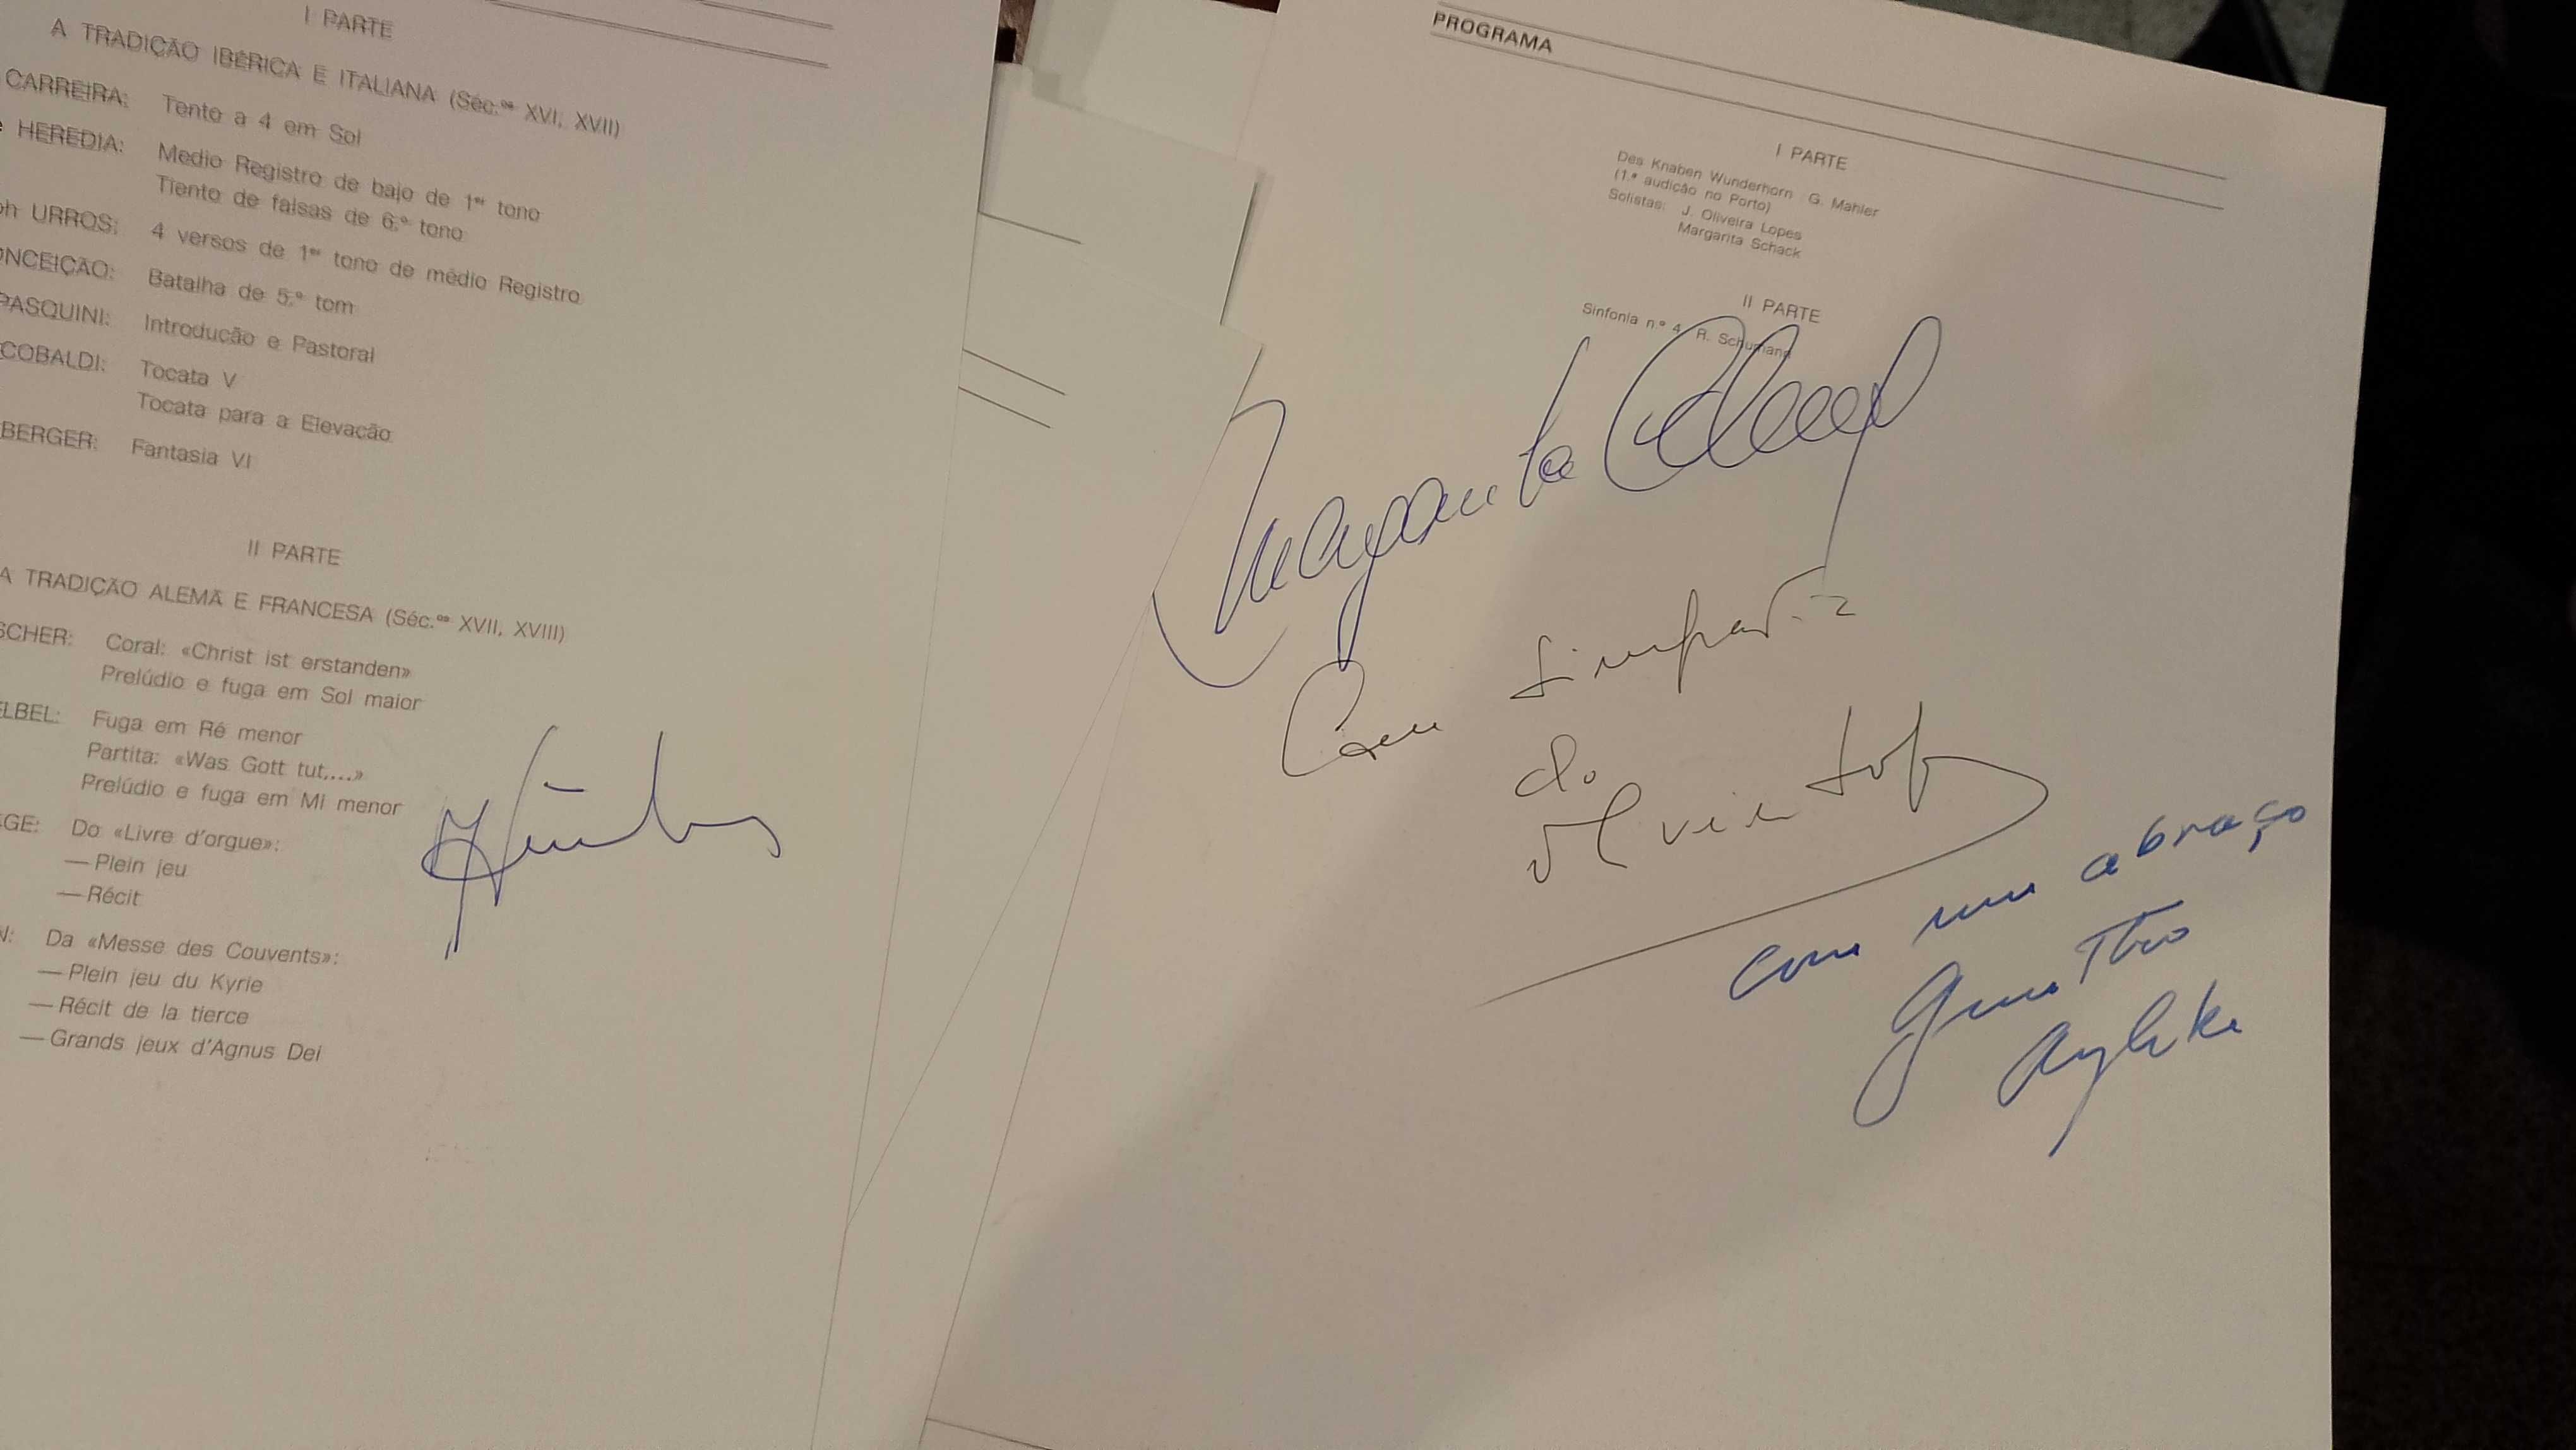 I PARTE
A TRADIÇÃO IBÉRICA E ITALIANA (Séc.ºs XVI, XVII)
CARREIRA: Tento a 4 em Sol
HEREDIA: Medio Registro de bajo de 1er tono
Tiento de falsas de 6.º tono
URROS: 4 versos de 1er tono de médio Registro
ONCEIÇÃO: Batalha de 5.º tom
PASQUINI: Introdução e Pastoral
COBALDI: Tocata V
Tocata para a Elevação
BERGER: Fantasia VI
II PARTE
A TRADIÇÃO ALEMÃ E FRANCESA (Séc.ºs XVII, XVIII)
SCHER: Coral: «Christ ist erstanden»
Prelúdio e fuga em Sol maior
ELBEL: Fuga em Ré menor
Partita: «Was Gott tut,...»
Prelúdio e fuga em Mi menor
GE: Do «Livre d'orgue»:
— Plein jeu
— Récit
N: Da «Messe des Couvents»:
— Plein jeu du Kyrie
— Récit de la tierce
— Grands jeux d'Agnus Dei
PROGRAMA
I PARTE
Des Knaben Wunderhorn G. Mahler
(1.ª audição no Porto)
Solistas: J. Oliveira Lopes
Margarita Schack
II PARTE
Sinfonia n.º 4 R. Schumann
Margarita Schack
Com simpatia
do
com um abraço